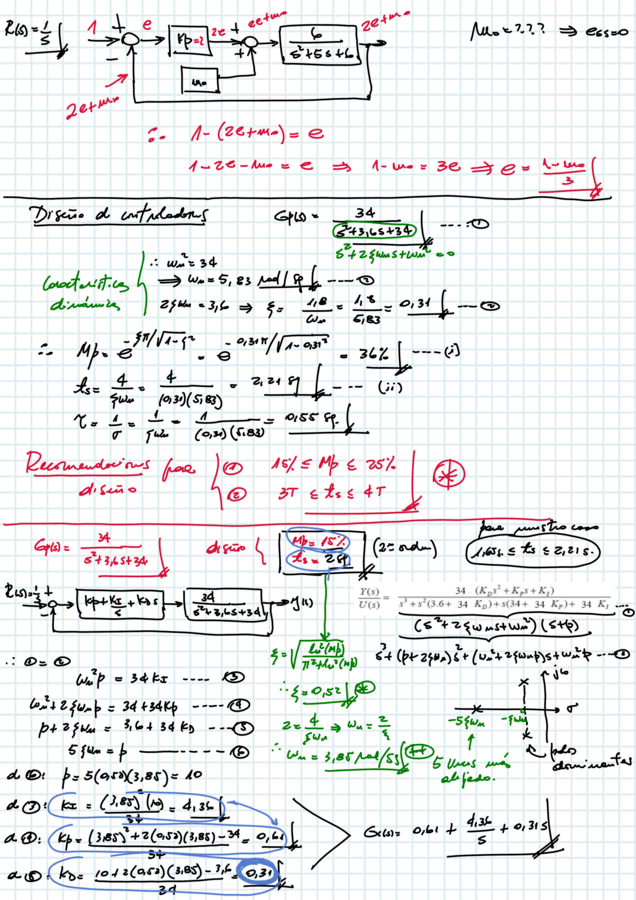 R(s)=1/s 1 + e Kp=2 2e + 2e+mo 6/(s²+5s+6) 2e+mo mo=??? ⇒ ess=0
- +
mo
2e+mo
∴ 1-(2e+mo) = e
1-2e-mo = e ⇒ 1-mo = 3e ⇒ e = (1-mo)/3
Diseño d controladores Gp(s) = 34/(s²+3,6s+34) ----①
s²+2ξωns+ωn²=0
Características dinámicas
∴ ωn²=34
⇒ ωn = 5,83 rad/sg
2ξωn = 3,6 ⇒ ξ = 1,8/ωn = 1,8/5,83 = 0,31
∴ Mp = e^(-ξπ/√(1-ξ²)) = e^(-0,31π/√(1-0,31²)) = 36% ----(i)
ts = 4/(ξωn) = 4/((0,31)(5,83)) = 2,21 sg ---- (ii)
τ = 1/σ = 1/(ξωn) = 1/((0,31)(5,83)) = 0,55 sg.
Recomendaciones para diseño
① 15% ≤ Mp ≤ 25% *
② 3T ≤ ts ≤ 4T
para nuestro caso
Gp(s) = 34/(s²+3,6s+34) diseño { Mp=15% (2º orden) 1,65s ≤ ts ≤ 2,21s.
ts = 2sg
R(s)=1/s + - Kp+KI/s+KDs 34/(s²+3,6s+34) y(s)
Y(s)/U(s) = 34 (KDs²+KPs+KI)/(s³+s²(3.6+ 34 KD)+s(34+ 34 KP)+ 34 KI)
(s²+2ξωns+ωn²)(s+p)
s³+(p+2ξωn)s²+(ωn²+2ξωnp)s+ωn²p
∴ ①=②
ωn²p = 34KI ---- ③
ωn²+2ξωnp = 34+34Kp ---- ④
p+2ξωn = 3,6+34KD ---- ⑤
5ξωn = p ---- ⑥
ξ = √(ln²(Mp)/(π²+ln²(Mp)))
∴ ξ = 0,52 *
2 = 4/(ξωn) ⇒ ωn = 2/ξ
∴ ωn = 3,85 rad/sg **
jω
σ
-5ξωn -ξωn
5 veces más alejado.
polos dominantes
d ⑥: p = 5(0,52)(3,85) = 10
d ③: KI = (3,85)²(10)/34 = 4,36
d ④: Kp = ((3,85)²+2(0,52)(3,85)-34)/34 = 0,61
d ⑤: KD = (10+2(0,52)(3,85)-3,6)/34 = 0,31
Gc(s) = 0,61 + 4,36/s + 0,31s